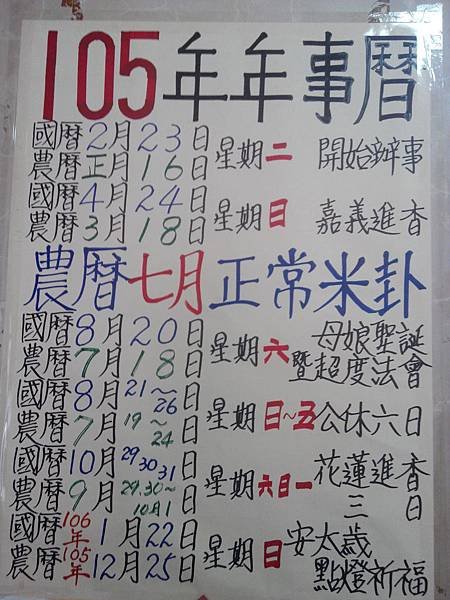 105年年事曆
國曆2月23日 星期二 開始辦事
農曆正月16日
國曆4月24日 星期日 嘉義進香
農曆3月18日
農曆七月正常米卦
國曆8月20日 星期六 母娘聖誕
農曆7月18日 暨超度法會
國曆8月21~26日 星期日~五 公休六日
農曆7月19~24日
國曆10月29 30 31日 星期六日一 花蓮進香
農曆9月29.30~10月1日 三日
國曆106年1月22日 星期日 安太歲
農曆105年12月25日 點燈祈福